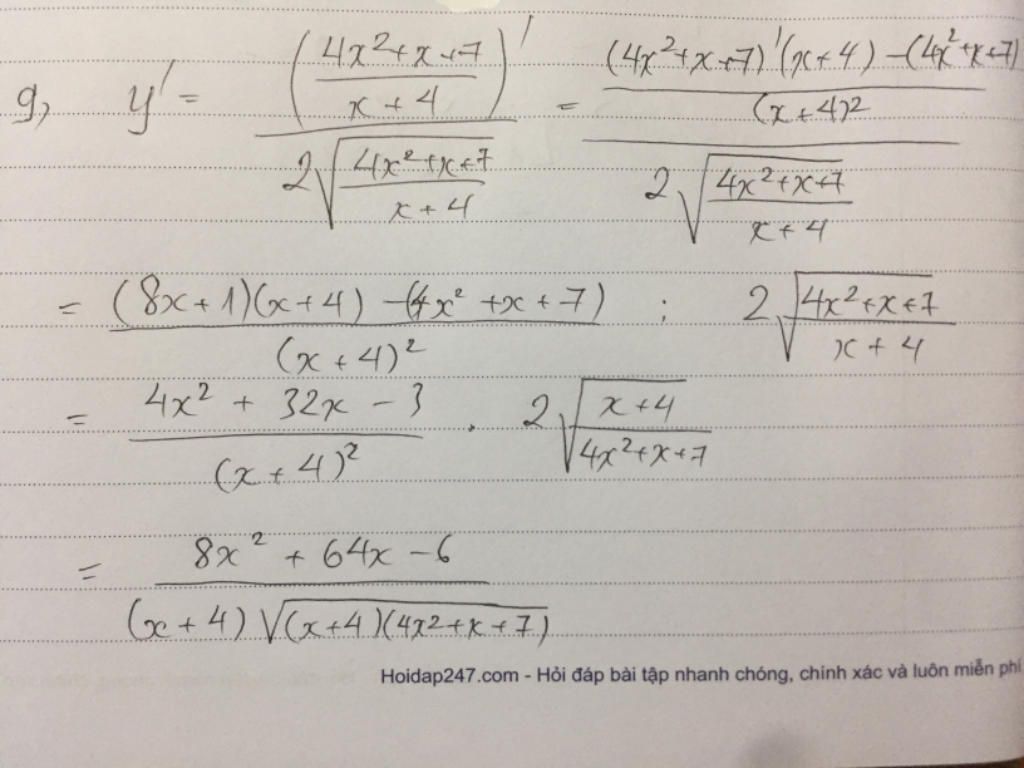 g, y' = ((4x²+x+7)/(x+4))' / (2√((4x²+x+7)/(x+4))) = (((4x²+x+7)'(x+4) - (4x²+x+7))/(x+4)²) / (2√((4x²+x+7)/(x+4)))
= ((8x+1)(x+4) - (4x²+x+7))/(x+4)² : 2√((4x²+x+7)/(x+4))
= (4x² + 32x - 3)/(x+4)² . 2√((x+4)/(4x²+x+7))
= (8x² + 64x - 6)/((x+4)√((x+4)(4x²+x+7)))
Hoidap247.com - Hỏi đáp bài tập nhanh chóng, chính xác và luôn miễn phí